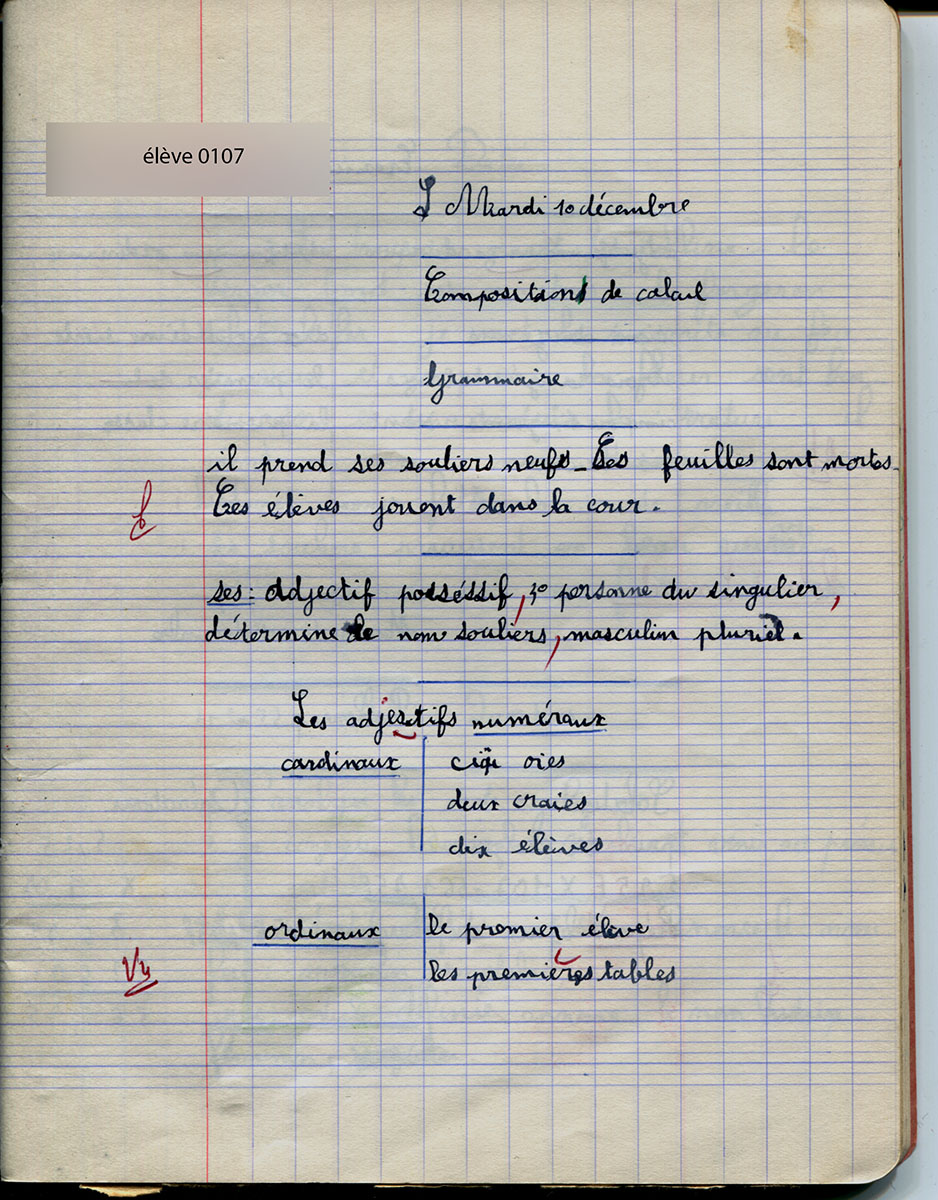 élève 0107
Mardi 10 décembre
Compositions de calcul
Grammaire
il prend ses souliers neufs. Les feuilles sont mortes.
Les élèves jouent dans la cour.
ses : adjectif possessif, 3e personne du singulier,
détermine le nom souliers, masculin pluriel.
Les adjectifs numéraux
cardinaux
oies
deux craies
dix élèves
ordinaux
le premier élève
les premières tables
Vu